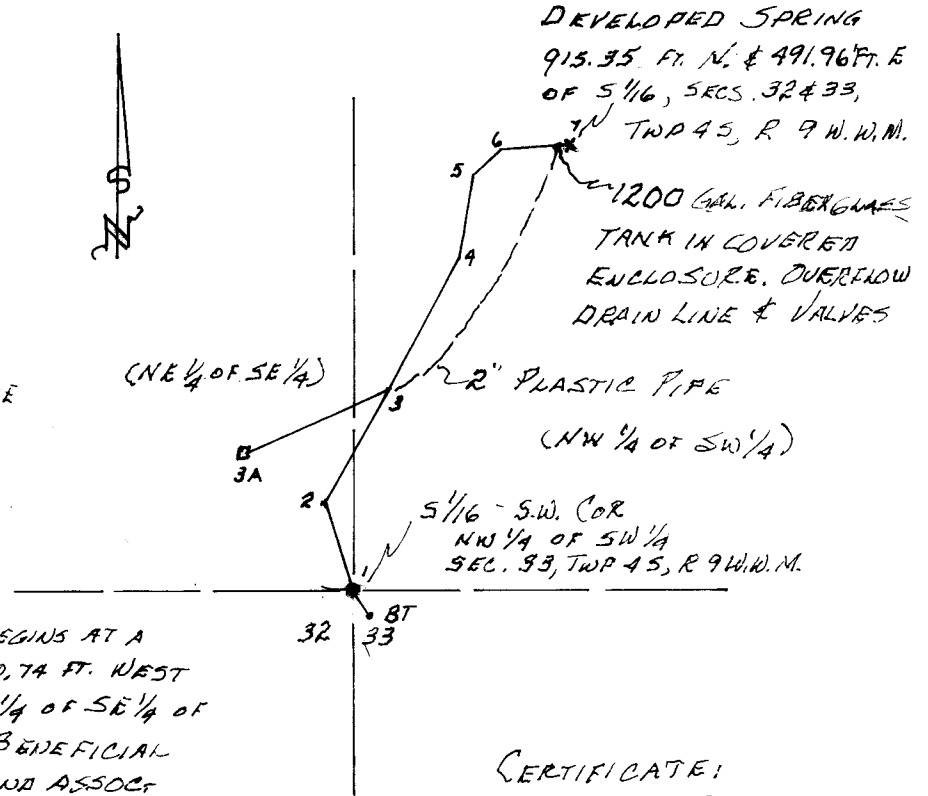 DEVELOPED SPRING
915.35 FT. N. & 491.96 FT. E
OF S 1/16, SECS. 32 & 33,
TWP 4S, R 9 W.W.M.
7
6
5
1200 GAL. FIBERGLASS
TANK IN COVERED
ENCLOSURE. OVERFLOW
DRAIN LINE & VALVES
S
N
4
(NE 1/4 OF SE 1/4)
2" PLASTIC PIPE
E
3
(NW 1/4 OF SW 1/4)
3A
2
S 1/16 - S.W. COR
NW 1/4 OF SW 1/4
SEC. 33, TWP 4S, R 9 W.W.M.
1
BT
32 33
EGINS AT A
0.74 FT. WEST
1/4 OF SE 1/4 OF
BENEFICIAL
ND ASSOC.
CERTIFICATE: